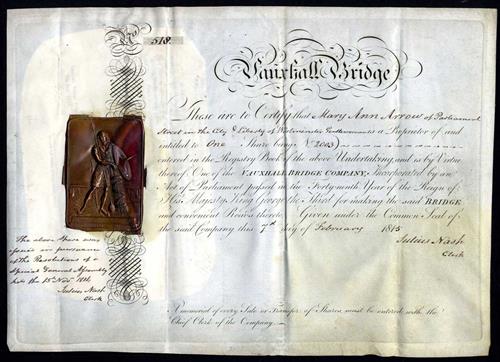 No. 518.
Vauxhall Bridge
These are to Certify that Mary Ann Arrow of Parliament
Street in the City & Liberty of Westminster is a Proprietor of and
entitled to One Share being No. 2003)
entered in the Registry Book of the above Undertaking and is by Virtue
thereof One of the VAUXHALL BRIDGE COMPANY, Incorporated by an
Act of Parliament passed in the Forty-ninth Year of the Reign of
His Majesty King George the Third for making the said BRIDGE
and convenient Roads thereto Given under the Common Seal of
the said Company this 7th day of February 1815
Julius Nash
Clerk
The above Share was
issued in pursuance
of the Resolutions of a
Special General Assembly
held the 15 Novr 1814
Julius Nash
Clerk
A memorial of every Sale or Transfer of Shares must be entered with the
Chief Clerk of the Company.